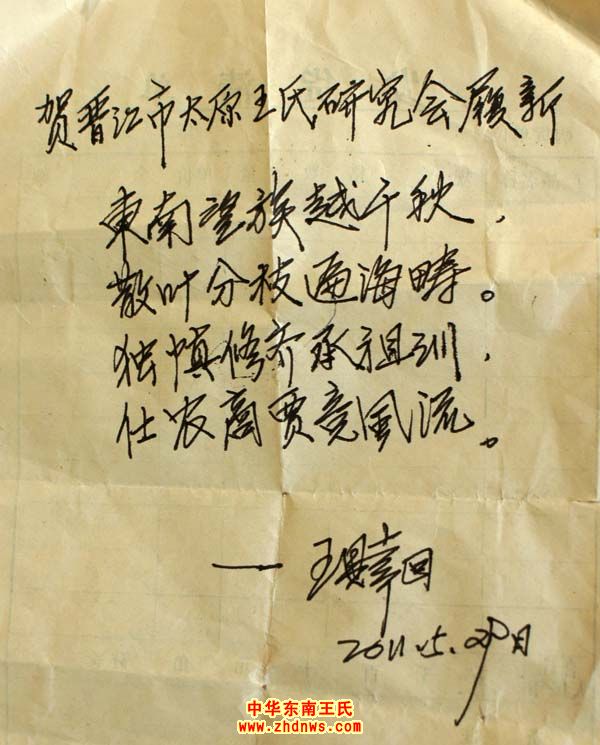 贺晋江市太原王氏研究会履新
東南望族越千秋，
散叶分枝遍海畴。
独慎修齐承祖训，
仕农商贾竞風流。
——王 幸回
2011.5. 日
中华东南王氏
www.zhdnws.com